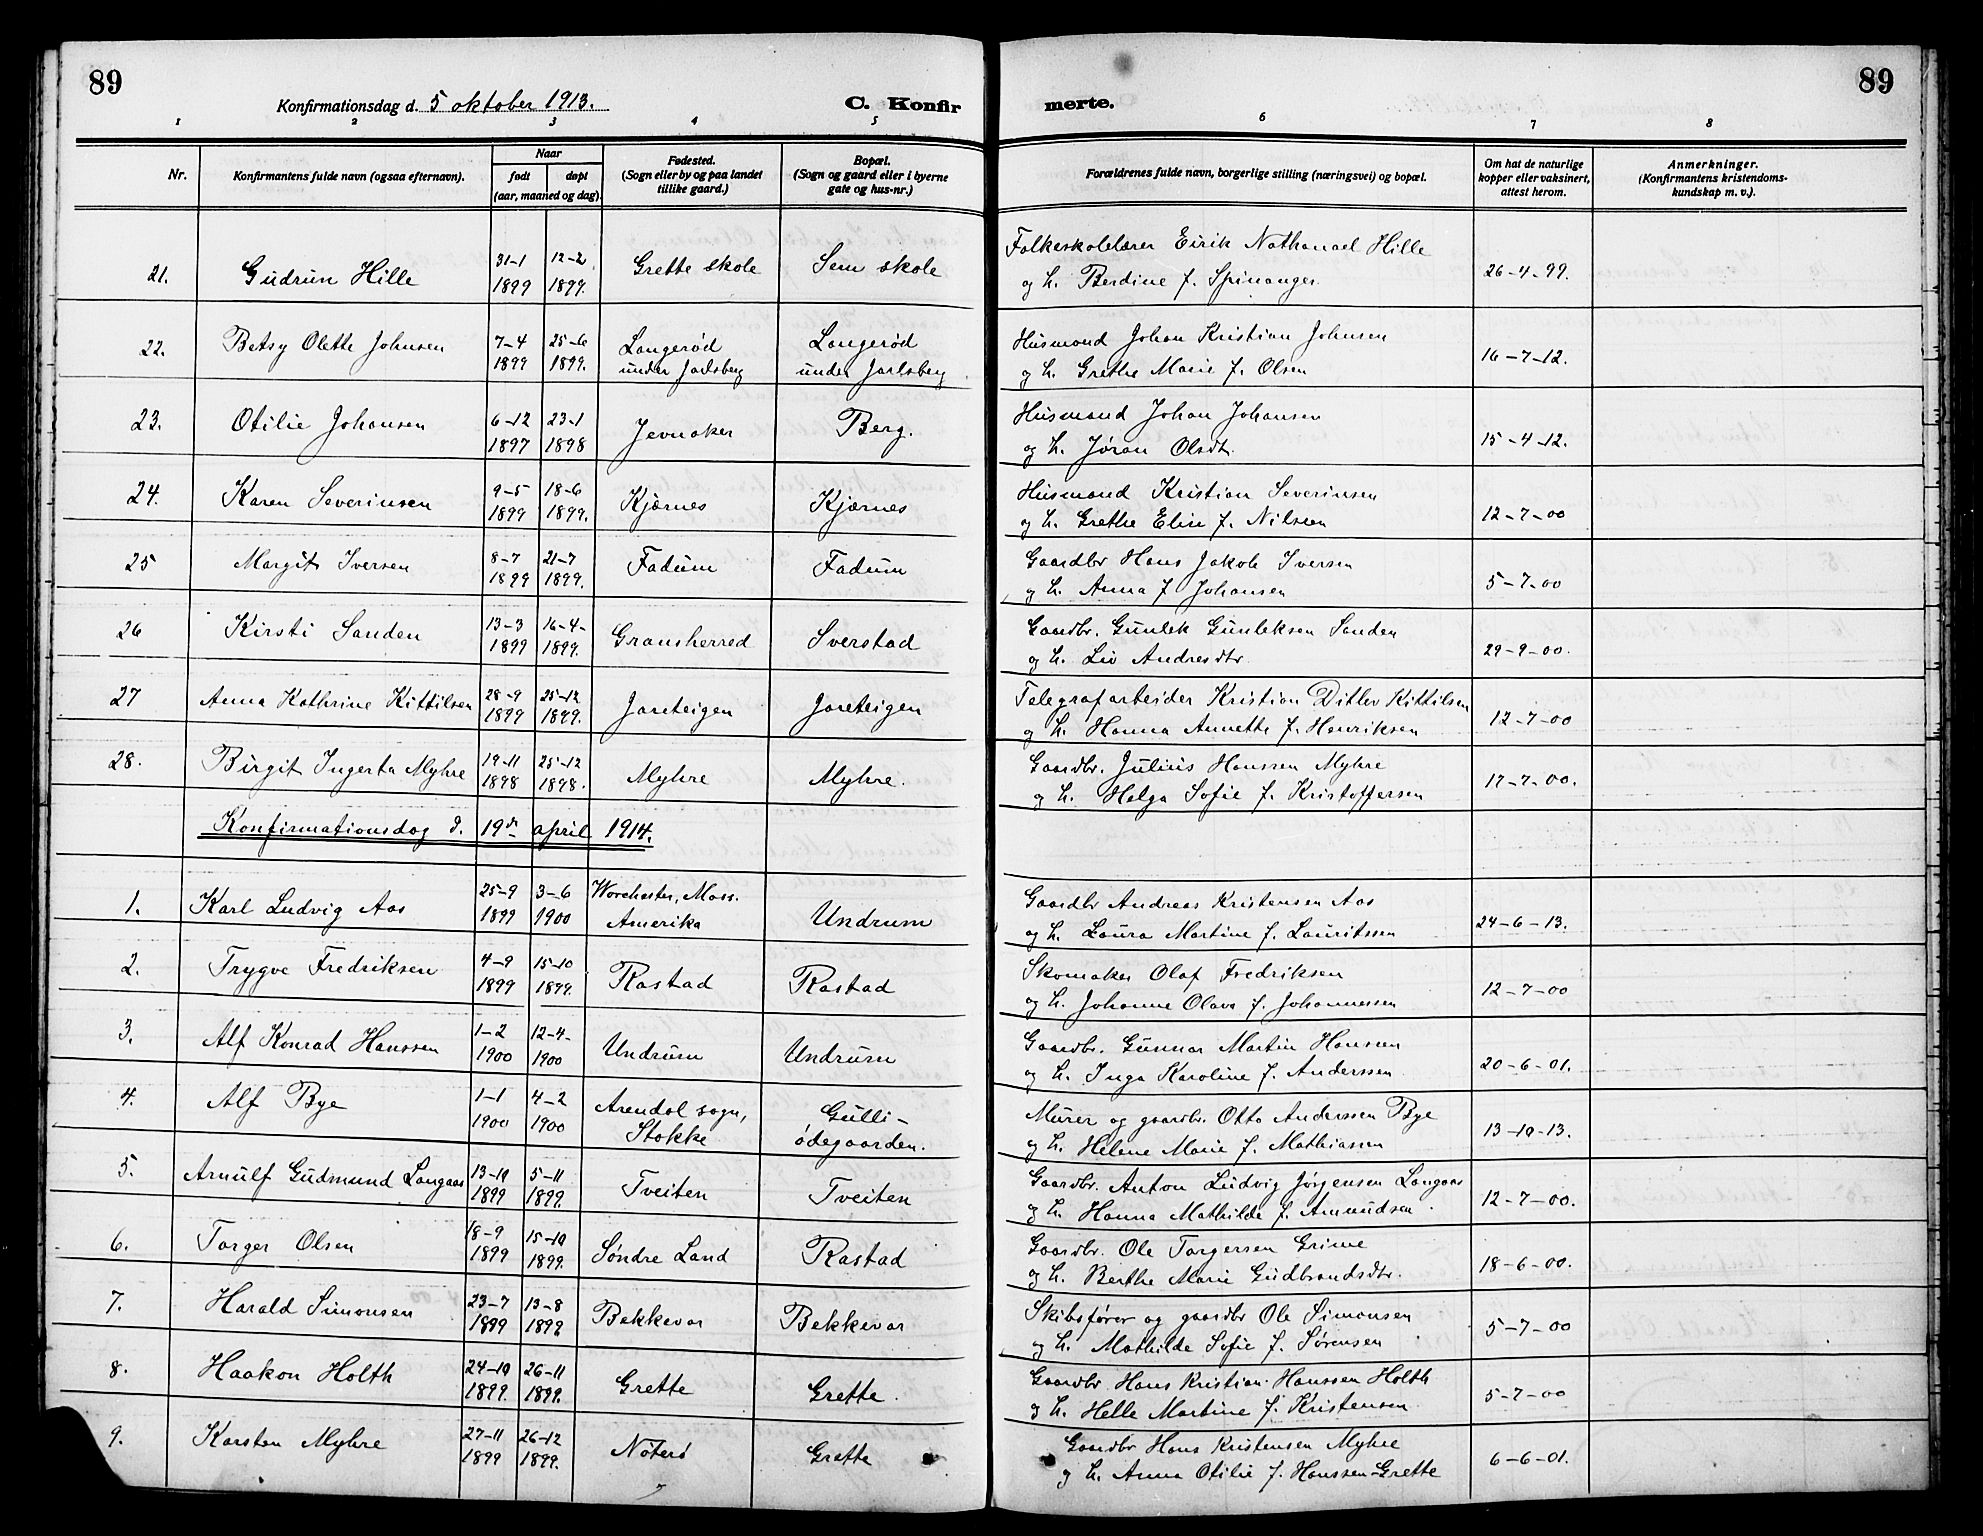 89
89
Konfirmationsdag d. 5 oktober 1913.
C. Konfirmerte.
1 2 3 4 5 6 7 8
Nr.
Konfirmantens fulde navn (ogsaa efternavn).
Naar
født døpt
(aar, maaned og dag)
Fødested.
(Sogn eller by og paa landet
tillike gaard.)
Bopæl.
(Sogn og gaard eller i byerne
gate og hus-nr.)
Forældrenes fulde navn, borgerlige stilling (næringsvei) og bopæl.
Om hat de naturlige
kopper eller vaksinert,
attest herom.
Anmerkninger.
(Konfirmantens kristendoms-
kundskap m. v.).
21. Gudrun Hille 31-1 1899 12-2 1899. Grette skole Sem skole Folkeskolelærer Eirik Nathanael Hille
og h. Berdine f. Spinanger. 26-4-99.
22. Betsy Olette Johnsen 7-4 1899 25-6 1899. Langerød under Jarlsberg Langerød under Jarlsberg Husmand Johan Kristian Johnsen
og h. Grethe Marie f. Olsen 16-7-12.
23. Otilie Johansen 6-12 1897 23-1 1898 Jevnaker Berg. Husmand Johan Johansen
og h. Jøran Olsdt. 15-4-12.
24. Karen Severinsen 9-5 1899 18-6 1899. Kjærnes Kjærnes Husmand Kristian Severinsen
og h. Grethe Elise f. Nilsen 12-7-00
25 Margit Iversen 8-7 1899 21-7 1899. Fadum Fadum Gaardbr Hans Jakob Iversen
og h. Anna f Johansen 5-7-00
26 Kirsti Sanden 13-3 1899 16-4- 1899. Gransherred Sverstad Gaardbr. Gunlek Gunleksen Sanden
og h. Liv Andresdtr. 29-9-00.
27 Anna Kathrine Kittilsen 28-9 1899 25-12 1899. Jareteigen Jareteigen Telegrafarbeider Kristian Ditlev Kittilsen
og h. Hanna Annette f. Henriksen 12-7-00
28. Birgit Ingerta Myhre 19-11 1898 25-12 1898. Myhre Myhre. Gaardbr. Julius Hanssen Myhre
og h. Helga Sofie f. Kristoffersen 17-7-00.
Konfirmationsdag d. 19de april 1914.
1. Karl Ludvig Aas 25-9 1899 3-6 1900 Worchester, Mass. Amerika Undrum Gaardbr Andreas Kristensen Aas
og h. Laura Martine f. Lauritssen 24-6-13.
2. Trygve Fredriksen 4-9 1899 15-10 1899. Rastad Rastad Skomaker Olaf Fredriksen
og h. Johanne Olava f. Johannessen 12-7-00
3. Alf Konrad Hanssen 1-2 1900 12-4- 1900 Undrum Undrum Gaardbr. Gunnar Martin Hansen
og h. Inga Karoline f. Anderssen 20-6-01.
4. Alf Bye 1-1 1900 4-2 1900 Arendal sogn, Stokke Gulli-ødegaarden. Murer og gaardbr. Otto Anderssen Bye
og h. Helene Marie f. Mathiassen 13-10-13.
5. Arnulf Gudmund Langaas 13-10 1899 5-11 1899. Tveiten Tveiten Gaardbr. Anton Ludvig Jørgensen Langaas
og h. Hanna Mathilde f. Amundsen. 12-7-00.
6. Torger Olsen 18-9 1899 15-10 1899. Søndre Land Rastad Gaardbr. Ole Torgersen Grime
og h. Berthe Marie Gudbrandsdtr. 18-6-00.
7. Harald Simonsen 23-7 1899 13-8 1899 Bekkevar Bekkevar Skibsfører og gaardbr Ole Simonsen
og h. Mathilde Sofie f. Sørensen 5-7-00
8. Haakon Holth 24-10 1899. 26-11 1899. Grette Grette. Gaardbr. Hans Kristian Hanssen Holth
og h. Helle Martine f. Kristensen 5-7-00
9. Karsten Myhre 27-11 1899 26-12 1899. Nøterø Grette Gaardbr Hans Kristensen Myhre
og h. Anna Otilie f. Hanssen-Grette 6-6-01.